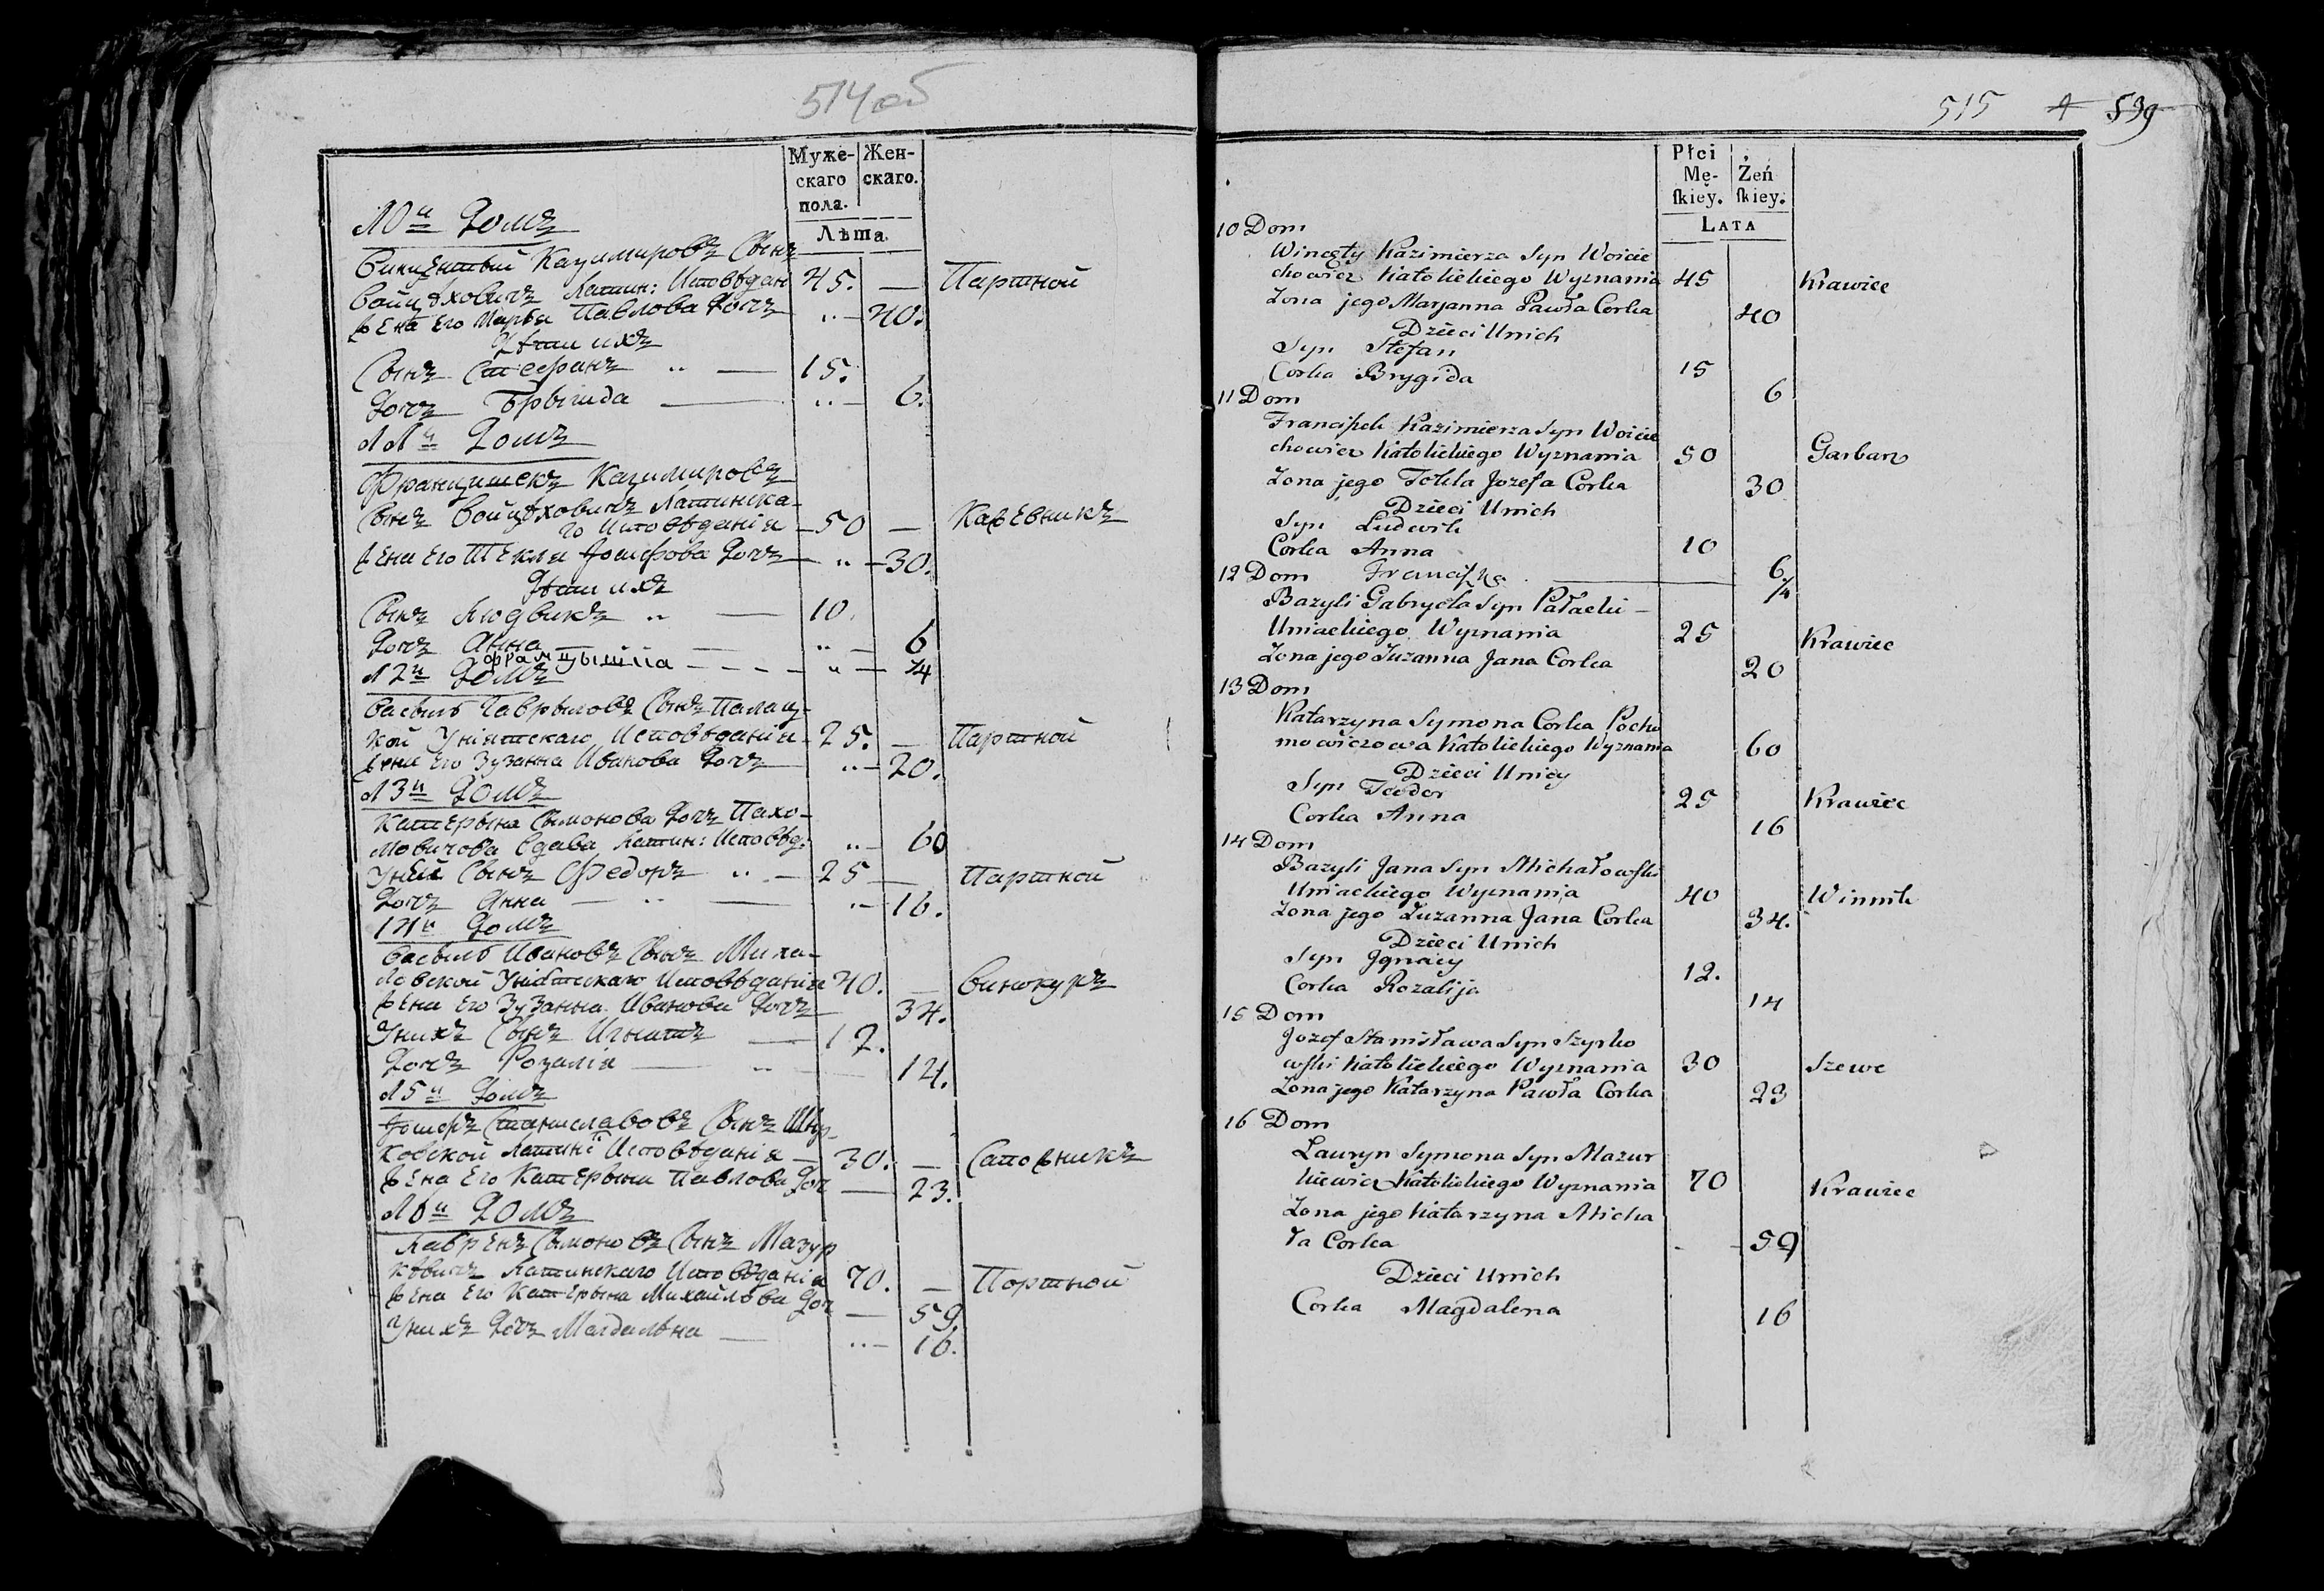 514 об
Муже-
скаго
пола.
Жен-
скаго.
Лѣта.
10й Домъ
Винцентый Казимировъ Сынъ
Войцѣховичъ Латин: Исповѣдан 45. — Партной
жена Его Марья Павлова Дочъ 40.
Дѣти ихъ
Сынъ Стефанъ 15.
Дочъ Брыгида 6.
11й Домъ
Францишекъ Казимировъ
Сынъ Войцѣховичъ Латинска-
го Исповѣданія — 50 — Кажевникъ
жена Его Текля Іосифова Дочъ — 30.
Дѣти ихъ
Сынъ Людвикъ 10.
Дочъ Анна 6
Францышка 1/4
12й Домъ
Василь Гаврыловъ Сынъ Палац-
кой Уніятскаго Исповѣданія 25. — Партной
жена Его Зузанна Иванова Дочъ 20.
13й Домъ
Катерына Сымонова Дочъ Пахо-
мовичова Вдава Латин: Исповѣд: 60
Унѣй Сынъ Федоръ 25 — Партной
Дочъ Анна 16.
14й Домъ
Василь Ивановъ Сынъ Миха-
ловской Уніятскаго Исповѣданія 40. — Винокуръ
жена Его Зузанна Иванова Дочъ 34.
Унихъ Сынъ Игнатъ 12.
Дочъ Розалія 14.
15й Домъ
Іосифъ Станиславовъ Сынъ Шыр-
ковской Латин: Исповѣданія — 30. — Сапожникъ
жена Его Катерына Павлова Доч 23.
16й Домъ
Лавренъ Сымоновъ Сынъ Мазур
кѣвичъ Латинскаго Исповѣданія 70. — Портной
жена Его Катерына Михайлова Доч 59.
Унихъ Дочъ Магдальна 16.
515 4 539
Płci
Mę-
ſkiey.
Żeń
ſkiey.
LATA
10 Dom
Wincęty Kazimierza Syn Woicie
chowicz Katolickiego Wyznania 45 Krawiec
Zona jego Maryanna Pawła Corka 40
Dzieci Unich
Syn Stefan 15
Corka Brygida 6
11 Dom
Franciſzek Kazimierza Syn Woicie
chowicz Katolickiego Wyznania 50 Garbarz
Zona jego Tekla Jozefa Corka 30
Dzieci Unich
Syn Ludwik 10
Corka Anna 6
12 Dom Franciſzka 1/4
Bazyli Gabryela Syn Pałacki —
Uniackiego Wyznania 25 Krawiec
Zona jego Zuzanna Jana Corka 20
13 Dom
Katarzyna Symona Corka Pocho
mowiczowa Katolickiego Wyznania 60
Dzieci Unicy
Syn Teodor 25 Krawiec
Corka Anna 16
14 Dom
Bazyli Jana Syn Michałowſki
Uniackiego Wyznania 40 Winnik
Zona jego Zuzanna Jana Corka 34.
Dzieci Unich
Syn Jgnacy 12.
Corka Rozalija 14
15 Dom
Jozef Stanisława Syn Szyrko
wſki Katolickiego Wyznania 30 Szewc
Zona jego Katarzyna Pawła Corka 23
16 Dom
Lauryn Symona Syn Mazur
kiewicz Katolickiego Wyznania 70 Krawiec
Zona jego Katarzyna Micha
ła Corka 59
Dzieci Unich
Corka Magdalena 16